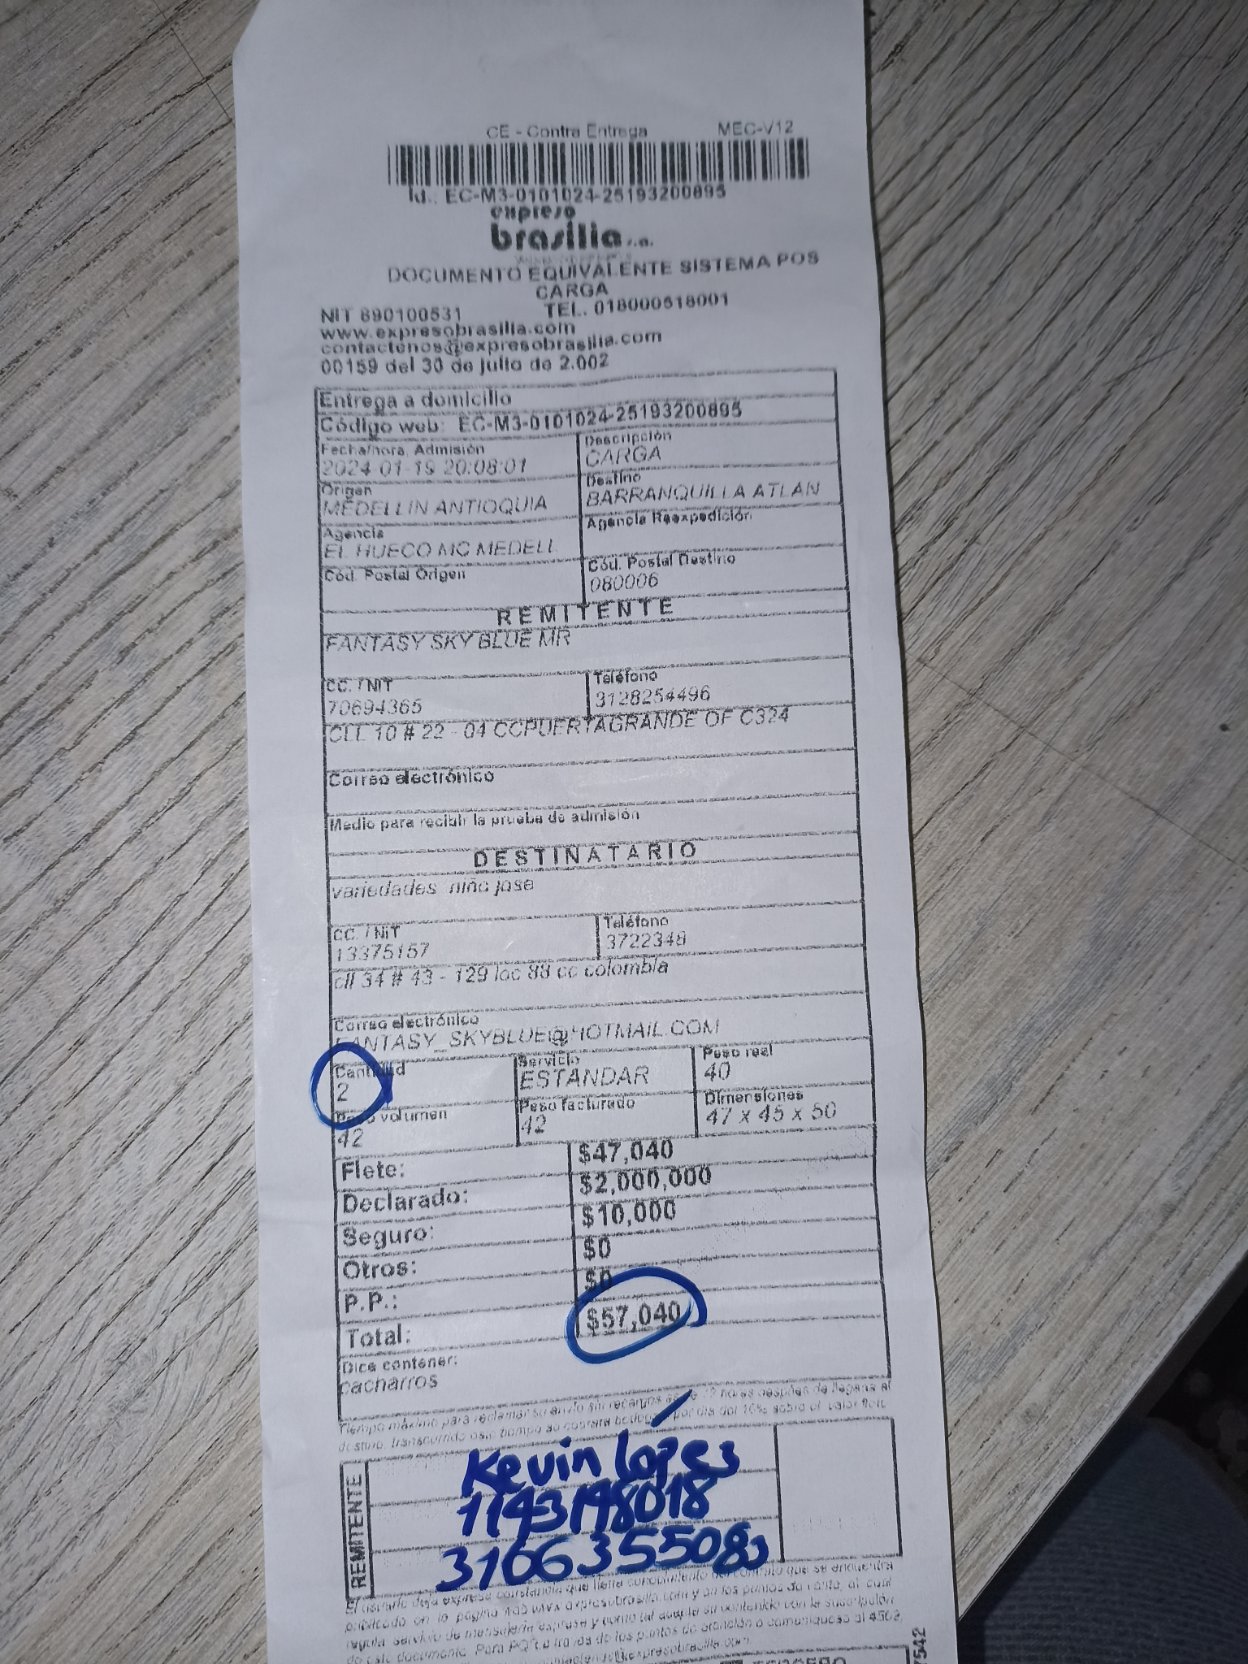 CE - Contra Entrega MEC-V12
Id.: EC-M3-0101024-25193200895
expreso
brasilia s.a.
DOCUMENTO EQUIVALENTE SISTEMA POS
CARGA
NIT 890100531 TEL. 018000518001
www.expresobrasilia.com
contactenos@expresobrasilia.com
00159 del 30 de julio de 2.002
Entrega a domicilio
Código web: EC-M3-0101024-25193200895
Fecha/hora. Admisión Descripción
2024-01-19 20:08:01 CARGA
Origen Destino
MEDELLIN ANTIOQUIA BARRANQUILLA ATLAN
Agencia Agencia Reexpedición
EL HUECO MC MEDELL
Cód. Postal Origen Cód. Postal Destino
080006
REMITENTE
FANTASY SKY BLUE MR
CC. / NIT Teléfono
70694365 3128254496
CLL 10 # 22 - 04 CCPUERTAGRANDE OF C324
Correo electrónico
Medio para recibir la prueba de admisión
DESTINATARIO
variedades niño jose
CC. / NIT Teléfono
13375157 3722348
cll 34 # 43 - 129 loc 88 cc colombia
Correo electrónico
FANTASY_SKYBLUE@HOTMAIL.COM
Cantidad Servicio Peso real
2 ESTANDAR 40
Peso volumen Peso facturado Dimensiones
42 42 47 x 45 x 50
Flete: $47,040
Declarado: $2,000,000
Seguro: $10,000
Otros: $0
P.P.: $0
Total: $57,040
Dice contener:
cacharros
Tiempo máximo para reclamar su envío sin recargos es de 72 horas después de llegada al
destino, transcurrido este tiempo se cobrará bodegaje por día del 10% sobre el valor flete
REMITENTE
Kevin lópes
1143148018
3166355083
El usuario deja expresa constancia que tiene conocimiento del contrato que se encuentra
publicado en la página web www.expresobrasilia.com y en los puntos de venta, el cual
regula servicio de mensajería expresa y como tal acepta su contenido con la suscripción
de este documento. Para PQR a través de los puntos de atención o comuníquese al
expresobrasilia.com
7542